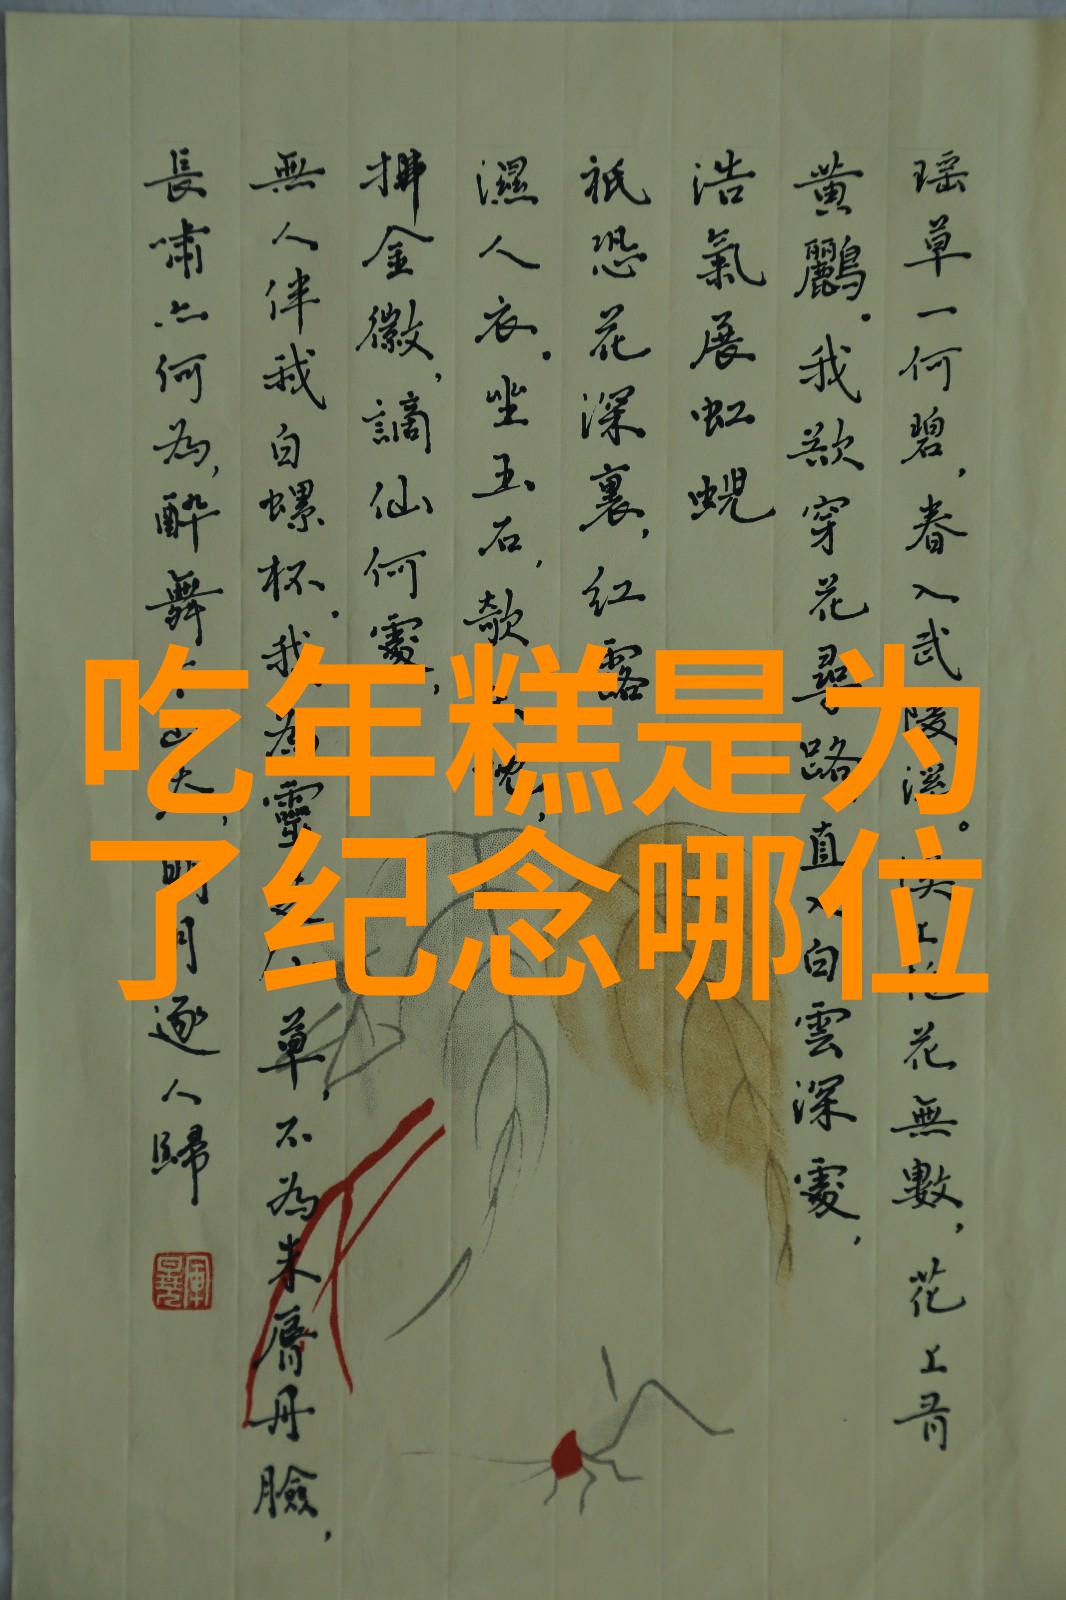 吃年糕是为
了纪念哪位
瑶草一何碧，春入武陵溪。溪上桃花無數，花上有
黄鸝。我欲穿花尋路，直入白雲深處，
浩氣展虹蜺
祇恐花深裏，紅露
濕人衣。坐玉石，欹玉枕，
拂金徽，謫仙何處，
無人伴我白螺杯。我為靈芝仙草，不為朱唇丹臉，
長嘯亦何為，醉舞下山去，明月逐人歸